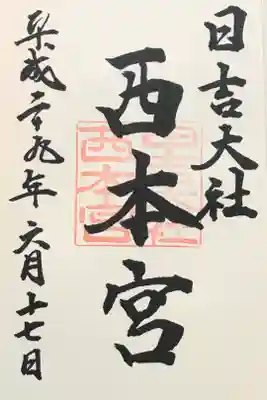 日吉大社
西本宮
平成二十九年六月十七日